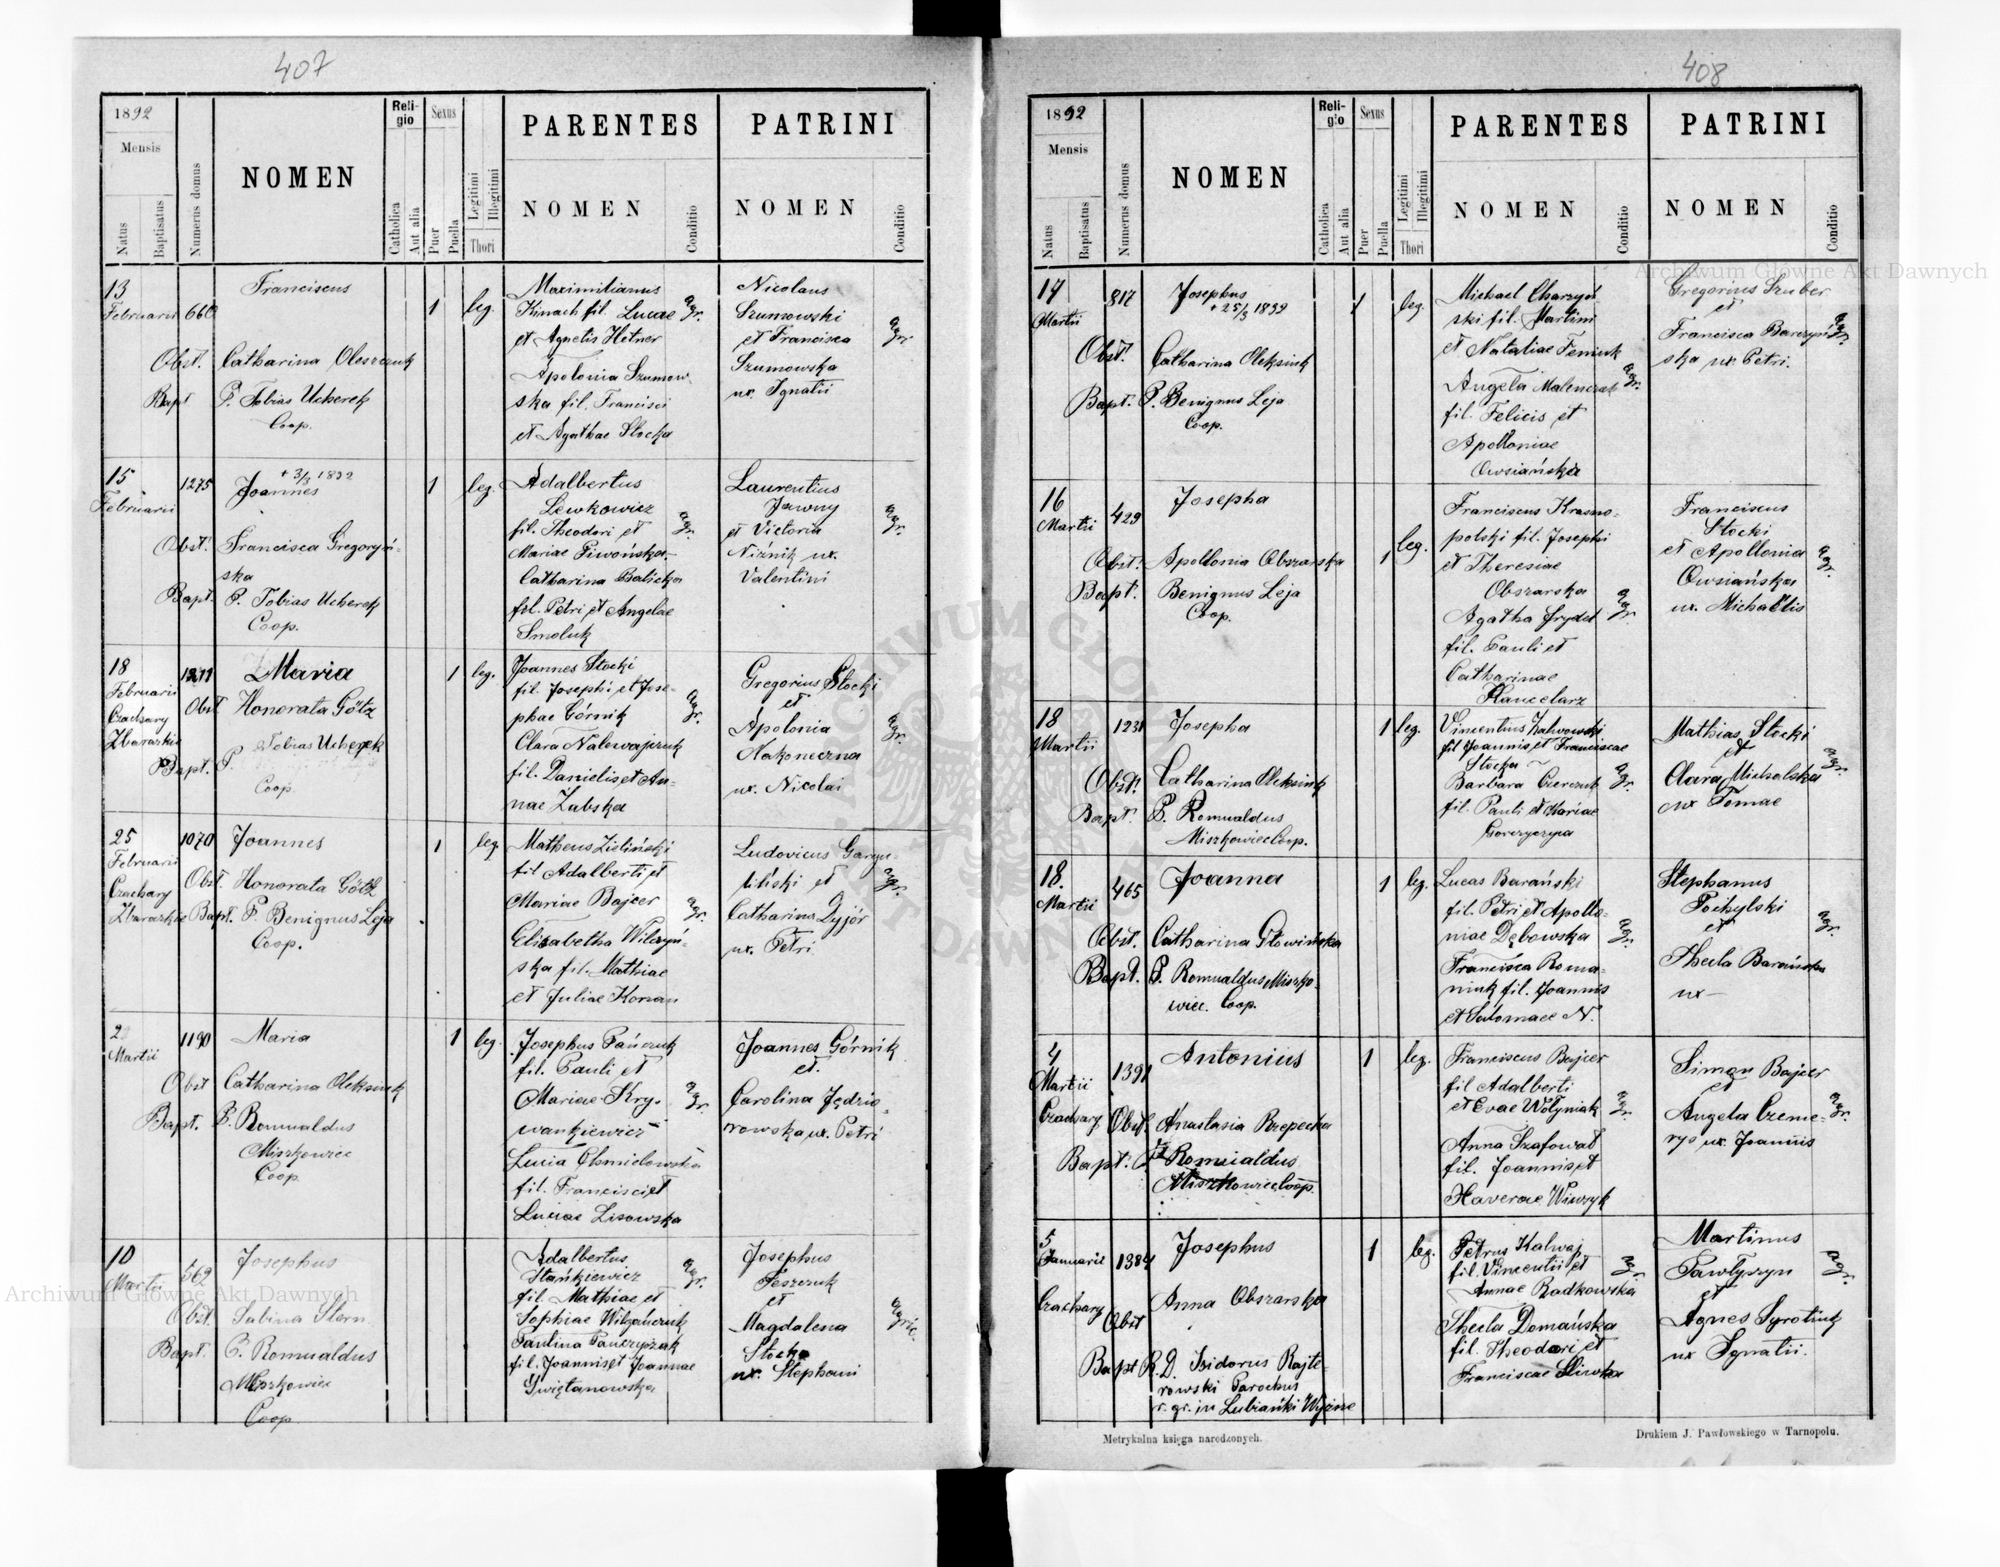 407
1892
Mensis
Natus
Baptisatus
Numerus domus
NOMEN
Religio
Catholica
Aut alia
Sexus
Puer
Puella
Legitimi
Illegitimi
Thori
PARENTES
NOMEN
Conditio
PATRINI
NOMEN
Conditio
13
Februarii
660
Franciscus
Obst. Catharina Oleszczuk
Bapt P. Tobias Ucherek
Coop.
1
leg.
Maximilianus
Kinach fil. Lucae
et Agnetis Hetner
Apolonia Szumow-
ska fil. Francisci
et Agathae Stocka
agr.
Nicolaus
Szumowski
et Francisca
Szumowska
ux. Ignatii
agr.
15
Februarii
1275
+ 3/3 1892
Joannes
Obst. Francisca Gregoryń-
ska
Bapt. P. Tobias Ucherek
Coop.
1
leg.
Adalbertus
Lewkowicz
fil. Theodori et
Mariae Piwońska
Catharina Balicka
fil. Petri et Angelae
Smoluk
agr.
Laurentius
Jawny
et Victoria
Niżnik ux.
Valentini
agr.
18
Februarii
Czachary
Zbarazkie
Maria
Obst Honorata Götz
Bapt. P. Tobias Ucherek
Coop.
1
leg.
Joannes Stocki
fil. Josephi et Jose-
phae Górnik
Clara Nalewajczuk
fil. Danielis et An-
nae Zabska
agr.
Gregorius Stocki
et
Apolonia
Nakoneczna
ux. Nicolai
agr.
25
Februarii
Czachary
Zbarazkie
1070
Joannes
Obst. Honorata Götz
Bapt. P. Benignus Leja
Coop.
1
leg
Matheus Zieliński
fil Adalberti et
Mariae Bajcer
Elisabetha Wilczyń-
ska fil. Mathiae
et Juliae Konan
agr.
Ludovicus
et
Catharina Dyjór
ux. Petri
agr.
2
Martii
1190
Maria
Obst Catharina Oleksiuk
Bapt. P. Romualdus
Miszkowiec
Coop
1
leg.
Josephus Pańczuk
fil. Pauli et
Mariae Kry-
wankiewicz
Lucia Chmielowska
fil. Francisci et
Lucae Lisowska
agr.
Joannes Górnik
et.
Carolina Jędrio-
rowska ux. Petri
10
Martii
562
Josephus
Obst. Sabina Storn
Bapt. P. Romualdus
Miszkowiec
Coop.
Adalbertus
Stańkiewicz
fil. Mathiae et
Sophiae Wilżańczuk
Paulina Panczyszak
fil. Joannis et Joannae
Swiętanowska
agr.
Josephus
Leszczuk
et
Magdalena
Stocka
ux. Stephani
agric.
408
1892
Mensis
Natus
Baptisatus
Numerus domus
NOMEN
Religio
Catholica
Aut alia
Sexus
Puer
Puella
Legitimi
Illegitimi
Thori
PARENTES
NOMEN
Conditio
PATRINI
NOMEN
Conditio
14
Martii
817
Josephus
+ 25/3 1892
Obst. Catharina Oleksiuk
Bapt. P. Benignus Leja
Coop.
1
leg.
Michael Charzyń-
ski fil. Martini
et Nataliae Feniuk
Angela Malenczak
fil. Felicis et
Apolloniae
Owsiańska
agr.
Gregorius Szuber
et
Francisca Barczyń-
ska ux. Petri.
agr.
16
Martii
429
Josepha
Obst. Apollonia Obszarska
Bapt. Benignus Leja
Coop.
1
leg.
Franciscus Krasno-
polski fil. Josephi
et Theresiae
Obszarska
Agatha Frydel
fil. Pauli et
Catharinae
Kancelarz
agr.
Franciscus
Stocki
et Apollonia
Owsiańska
ux. Michaelis
agr.
18
Martii
1231
Josepha
Obst. Catharina Oleksiuk
Bapt. P. Romualdus
Miszkowiec Coop.
1
leg.
Vincentius Zalwowski
fil Joannis et Franciscae
Stocka
Barbara Czerczuk
fil. Pauli et Mariae
Gorczyczna
agr.
Mathias Stocki
et
Clara Michalska
ux Tomae
agr.
18.
Martii
465
Joanna
Obst. Catharina Głowińska
Bapt. P. Romualdus Miszko-
wiec. Coop.
1
leg.
Lucas Barański
fil. Petri et Apollo-
niae Dębowska
Francisca Roma-
niuk fil. Joannis
et Salomaee N.
agr.
Stephanus
Pochylski
et
Thecla Barańska
ux
agr.
4
Martii
Czachary
1391
Antonius
Obst. Anastasia Rzepecka
Bapt. P. Romualdus
Miszkowiec Coop.
1
leg.
Franciscus Bajcer
fil Adalberti
et Evae Wołyniak
Anna Szafował
fil. Joannis et
Xaverae Winczyk
agr.
Simon Bajcer
et
Angela Czeme-
rys ux. Joannis
agr.
5
Januarii
Czachary
1384
Josephus
Obst Anna Obszarska
Bapt R. D. Isidorus Rajte-
rowski Parochus
r. gr. in Lubianki Wyżne
1
leg.
Petrus Kalwaj
fil. Vincentii et
Annae Radkowska
Thecla Domańska
fil. Theodori et
Franciscae Sliwka
agr.
Martinus
Pawłyszyn
et
Agnes Syrotiuk
ux Ignatii.
agr.
Metrykalna księga narodzonych.
Drukiem J. Pawłowskiego w Tarnopolu.
Archiwum Główne Akt Dawnych
Archiwum Główne Akt Dawnych
ARCHIWUM GŁÓWNE AKT DAWNYCH